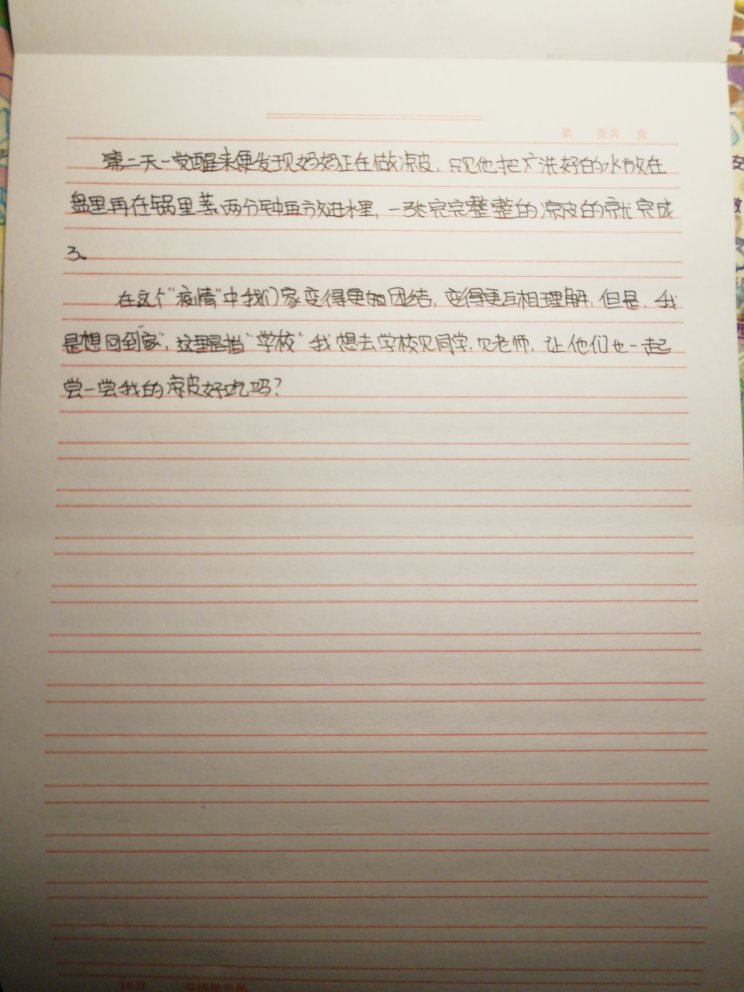 第 页共 页
第二天一觉醒来便发现妈妈正在做凉皮，只见他把洗好的水放在
盘里再在锅里蒸两分钟再放进水里，一张完完整整的凉皮的就完成
了。
在这个"疫情"中我们家变得更加团结，变得更互相理解，但是，我
是想回到"家"，这里是指"学校"我想去学校见同学，见老师，让他们也一起
尝一尝我的凉皮好吃吗？